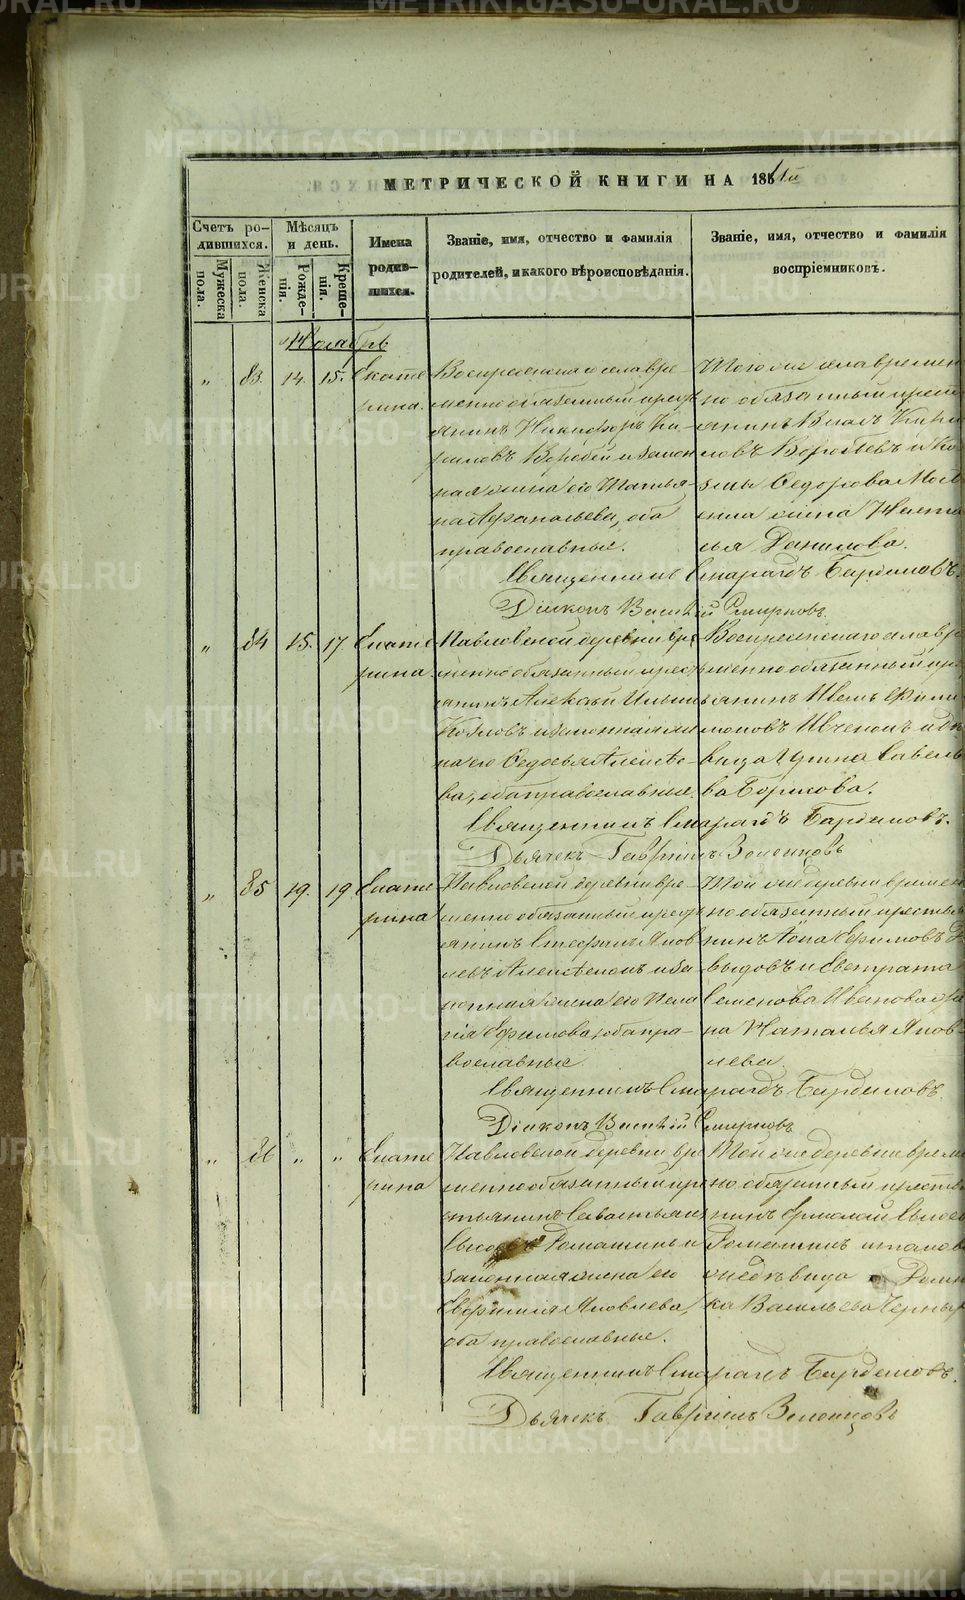 МЕТРИЧЕСКОЙ КНИГИ НА 186
Счетъ ро-
дившихся.
Мужеска
пола.
Женска
пола.
Мѣсяцъ
и день.
Рожде-
нія.
Креще-
нія.
Имена
родив-
шихся.
Званіе, имя, отчество и фамилія
родителей, и какого вѣроисповѣданія.
Званіе, имя, отчество и фамилія
воспріемниковъ.
Ноябрь
" 83. 14. 15. Екате
рина.
Воскресенскаго села вре
менно обязанный крест
янинъ Никифоръ Ки-
риловъ Воробей и закон
ная жена его Татья-
на Афанасьева, оба
православные.
Того же села времен
но обязанный крест
янинъ Власъ Кири
ловъ Воробьевъ и Ко
зьмы Федорова
жена Наста
сья Данилова.
Священникъ Смарагдъ Бардиловъ.
Діаконъ Василій Смирновъ.
" 84 15. 17 Екате
рина.
Павловской деревни вре
менно обязанный крест
янинъ Алексѣй Ильинъ
Козловъ и законная же
на его Федосья Алексѣе-
ва, оба православные.
Воскресенскаго села вре
менно обязанный кре
янинъ Иванъ Фили
моновъ
Савель
ва Борисова.
Священникъ Смарагдъ Бардиловъ.
Дьячекъ Гавріилъ Зеленцовъ
" 85 19. 19 Екате
рина
Павловской деревни вре-
менно обязанный крест
янинъ Стефанъ Яков
левъ и за
конная жена его Пела
гія Ефимова, оба пра-
вославные.
Той же деревни времен
но обязанный крестья
нинъ Ефимовъ
Семенова Иванова
на Наталья Яков-
лева.
Священникъ Смарагдъ Бардиловъ.
Діаконъ Василій Смирновъ
" 86 " " Екате
рина
Павловской деревни вр
менно обязанный кре
стьянинъ Савастьянъ
Ромашинъ и
законная жена его
Евфимія Яковлева,
оба православные.
Той же деревни време
но обязанный крестья
нинъ Ермолай
Ромашинъ
ка Васильева
Священникъ Смарагдъ Бардиловъ.
Дьячекъ Гавріилъ Зеленцовъ
METRIKI.GASO-URAL.RU